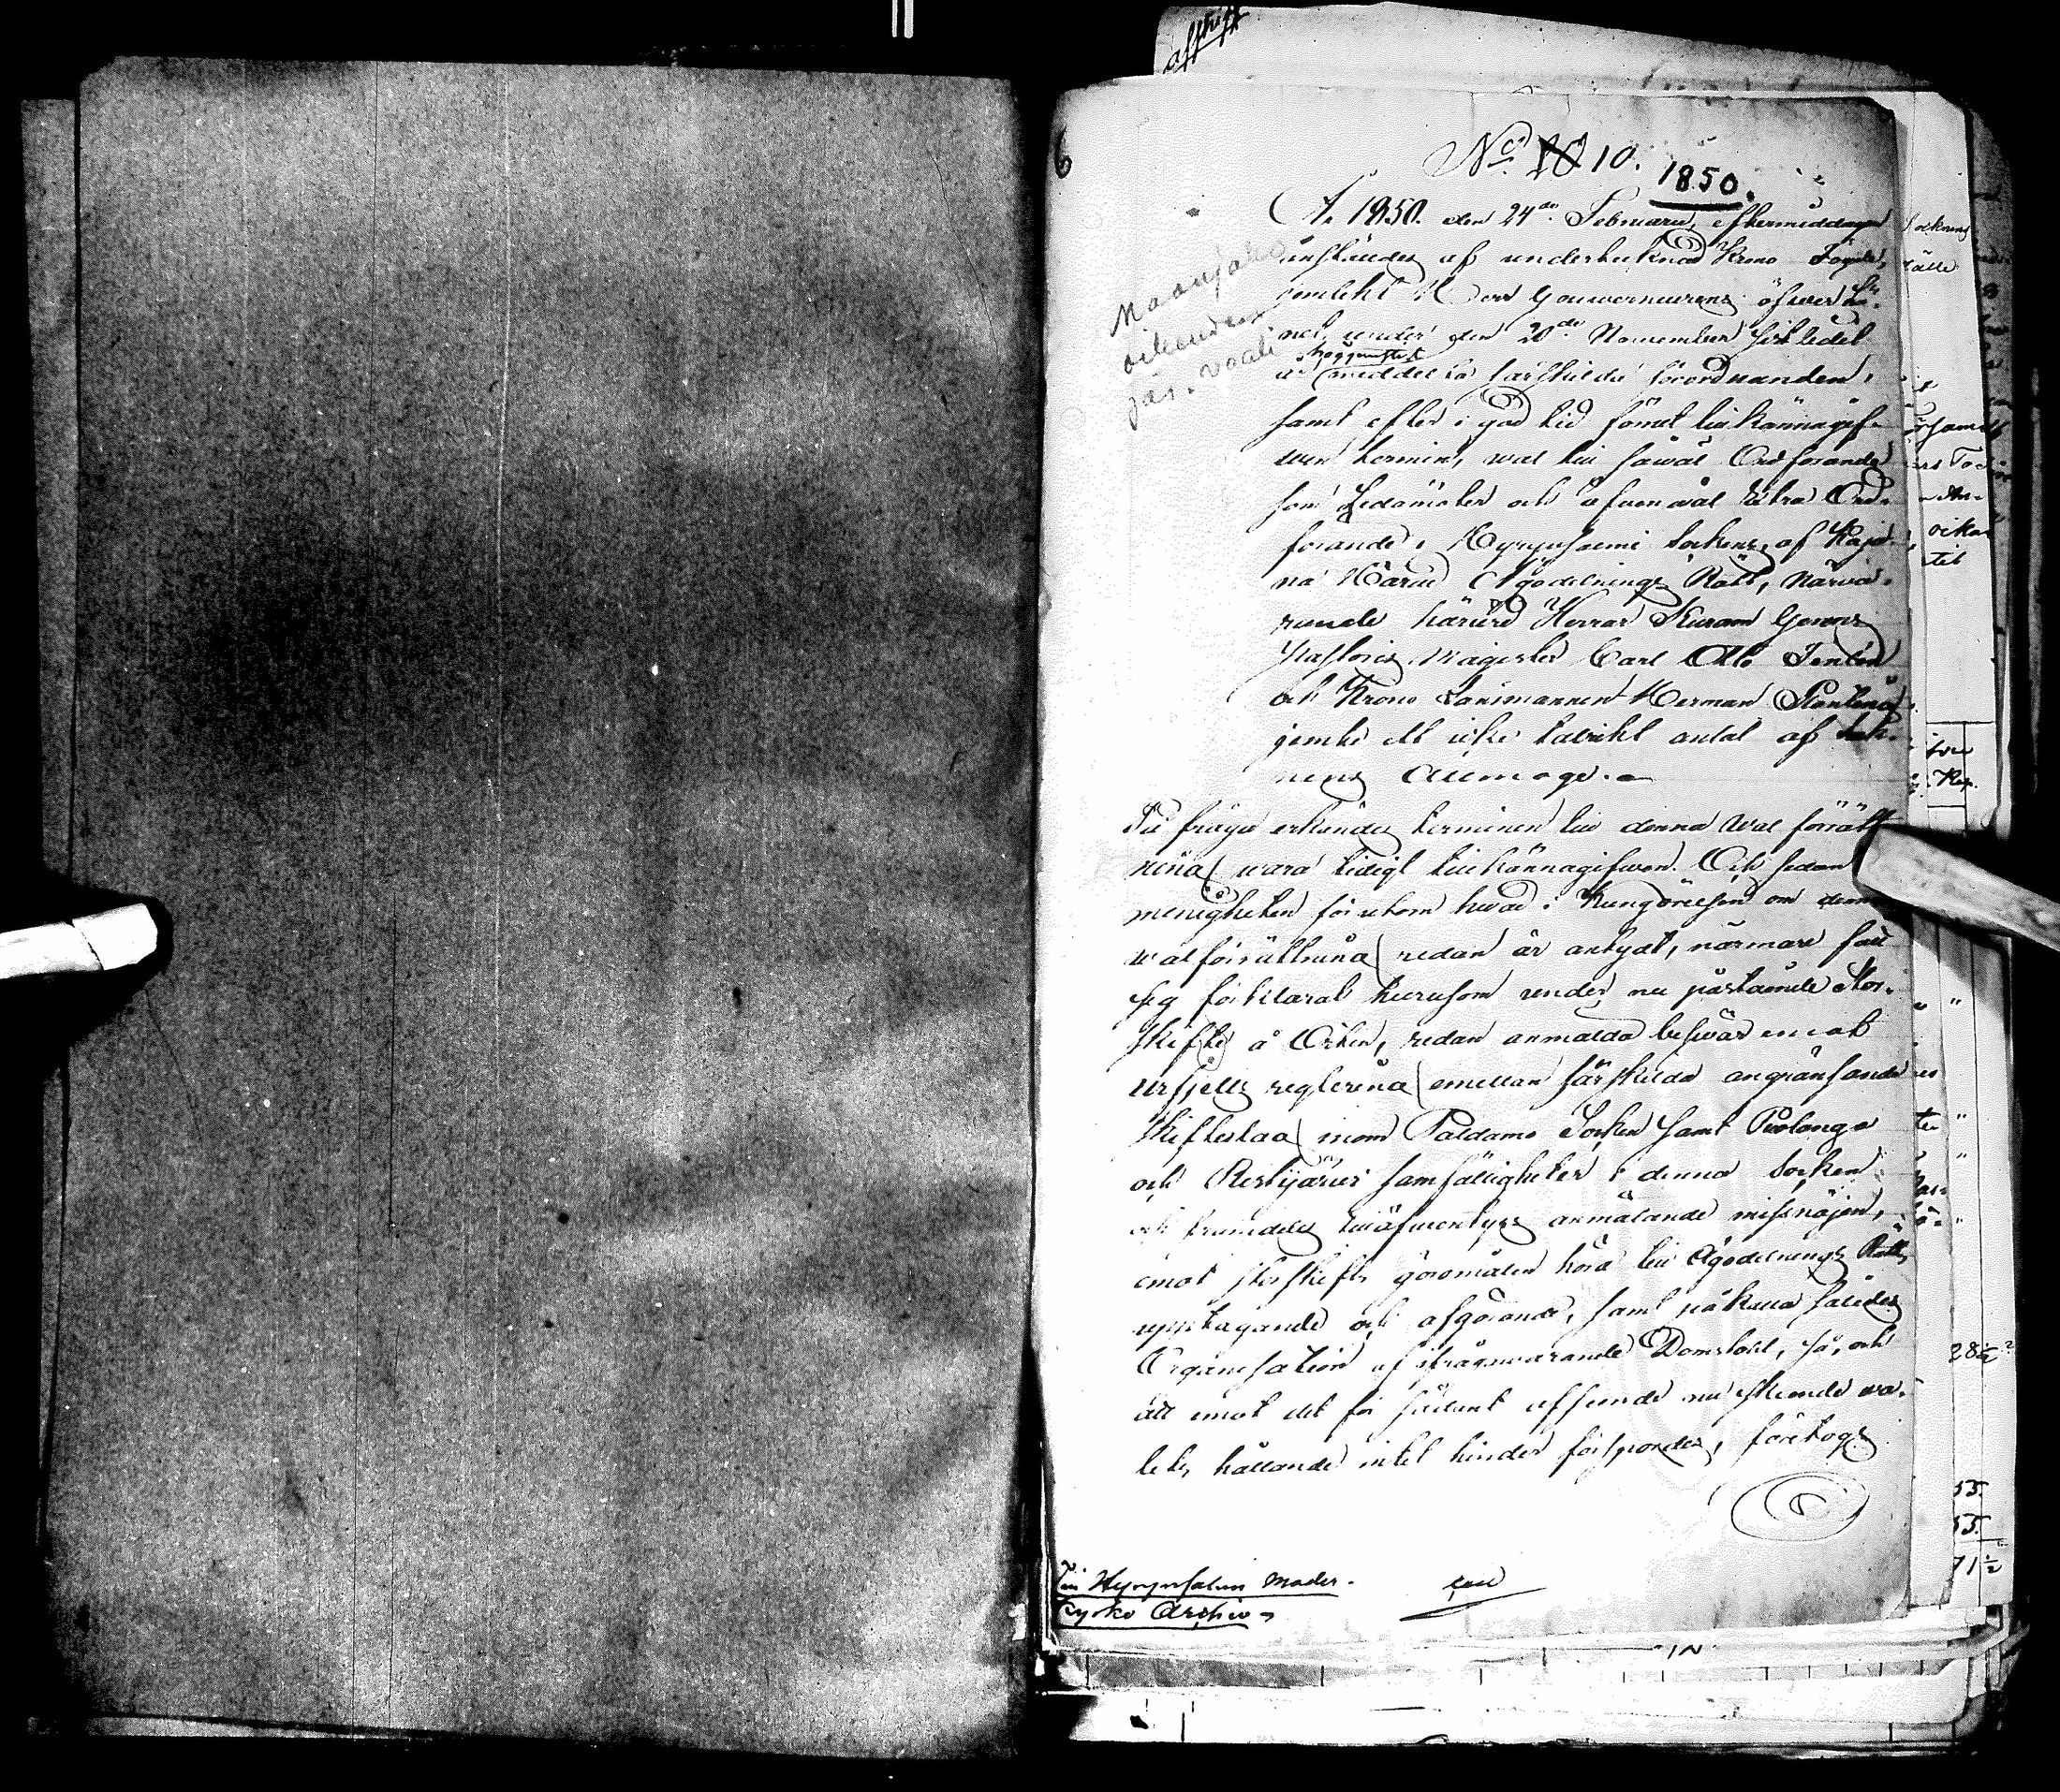 afskrift
6
No 10 10.
1850.
Maanjako
oikeuden
jäs. vaali
År 1850. den 24de Februarii, eftermiddagen
anställdes af undertecknad Krono Fogde,
jemlikt Herr Gouverneurens öfver Lä-
net, under den 20de November sistledet
år höggunstigt meddelta särskilda förordnanden,
samt efter i god tid förut tillkännagif-
wen termin, wal till såwäl Ordförande
som Ledamöter och äfwenwäl Ord-
förande i Hyrynsalmi Sockens af Kaja-
na Härad Ägodelnings Rätt, närwa-
rande härwid Herrar Sacram Gerens
Pastoris, Magister Carl Otto
och Krono Länsmannen Herman
jemte ett icke talrikt antal af Sock-
nens Allmoge.
På fråga erkändes terminen till denna wal förrätt-
ning wara tidigt tillkännagifwen. Och sedan
menigheten förutom hwad i Kungörelsen om denna
walförrättning redan är antydt, närmare fått
sig förklarat hurusom under nu påstående Stor-
skifte å Orten, redan anmälda beswär emot
urfjells reglering emellan särskilda angränsande
skifteslag inom Paldamo Socken samt Puolango
och Ristijärvi samfälligheter i denna Socken
och framdeles tilläfwentyrs anmälande missnöjen,
emot storskifts göromålen höra till Ägodelnings Rätts
upptagande och afgörande, samt påkalla således
Organisation af ifrågawarande Domstol, så, och
att emot det för sådant afseende nu skeende wa-
lets hållande intet hinder förspordes, företogs
Till Hyrynsalmi Moder-
kyrko Archiv